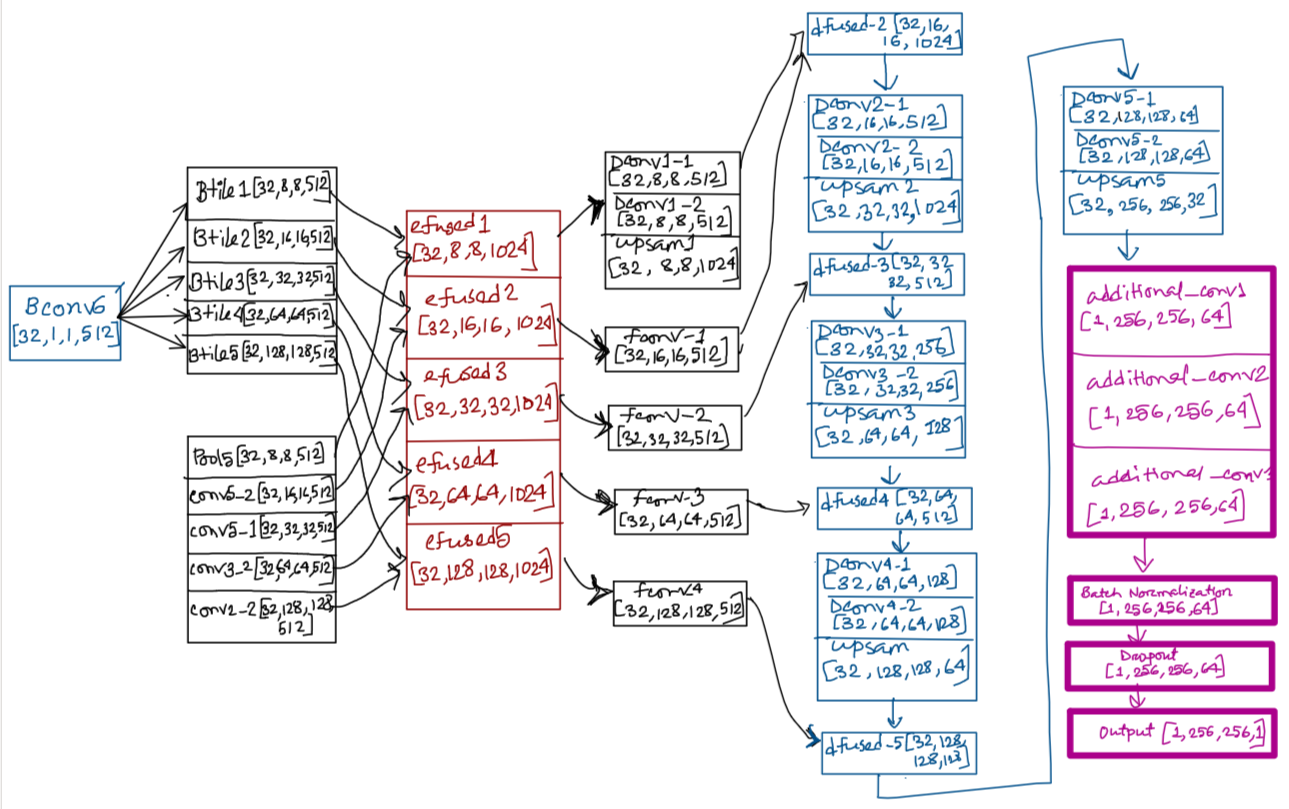 Bconv6
[32,1,1,512]
Btile1[32,8,8,512]
Btile2[32,16,16,512]
Btile3[32,32,32,512]
Btile4[32,64,64,512]
Btile5[32,128,128,512]
Pool5[32,8,8,512]
conv5-2[32,16,16,512]
conv5-1[32,32,32,512]
conv3-2[32,64,64,512]
conv2-2[32,128,128
512]
efused1
[32,8,8,1024]
efused2
[32,16,16,1024]
efused3
[32,32,32,1024]
efused4
[32,64,64,1024]
efused5
[32,128,128,1024]
Dconv1-1
[32,8,8,512]
Dconv1-2
[32,8,8,512]
upsam1
[32,8,8,1024]
fconv-1
[32,16,16,512]
fconv-2
[32,32,32,512]
fconv-3
[32,64,64,512]
fconv4
[32,128,128,512]
dfused-2[32,16,
16,1024]
Dconv2-1
[32,16,16,512]
Dconv2-2
[32,16,16,512]
upsam2
[32,32,32,1024]
dfused-3[32,32
32,512]
Dconv3-1
[32,32,32,256]
Dconv3-2
[32,32,32,256]
upsam3
[32,64,64,128]
dfused4[32,64,
64,512]
Dconv4-1
[32,64,64,128]
Dconv4-2
[32,64,64,128]
upsam
[32,128,128,64]
dfused-5[32,128,
128,128]
Dconv5-1
[32,128,128,64]
Dconv5-2
[32,128,128,64]
upsam5
[32,256,256,32]
additional_conv1
[1,256,256,64]
additional_conv2
[1,256,256,64]
additional_conv3
[1,256,256,64]
Batch Normalization
[1,256,256,64]
Dropout
[1,256,256,64]
Output [1,256,256,1]